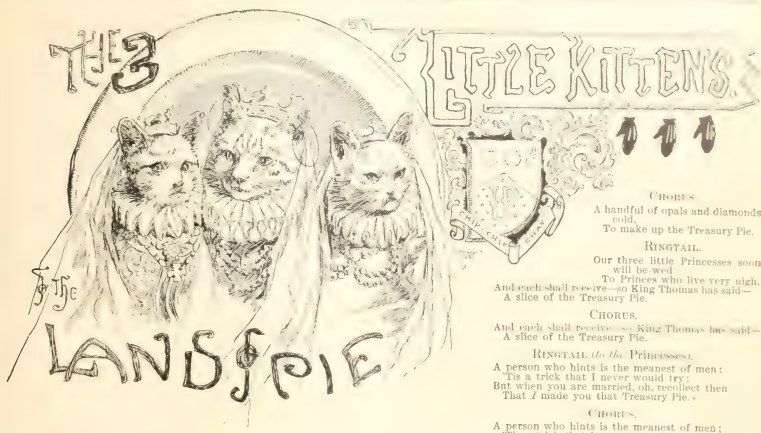 THE 3
LITTLE KITTENS.
In THE
LAND OF PIE
CHORUS
A handful of opals and diamonds
cold.
To make up the Treasury Pie.
RINGTAIL.
Our three little Princesses soon
will be wed
To Princes who live very nigh,
And each shall receive—so King Thomas has said—
A slice of the Treasury Pie.
CHORUS.
And each shall receive—so King Thomas has said—
A slice of the Treasury Pie.
RINGTAIL (to the Princesses).
A person who hints is the meanest of men:
'Tis a trick that I never would try;
But when you are married, oh, recollect then
That I made you that Treasury Pie.
CHORUS.
A person who hints is the meanest of men;